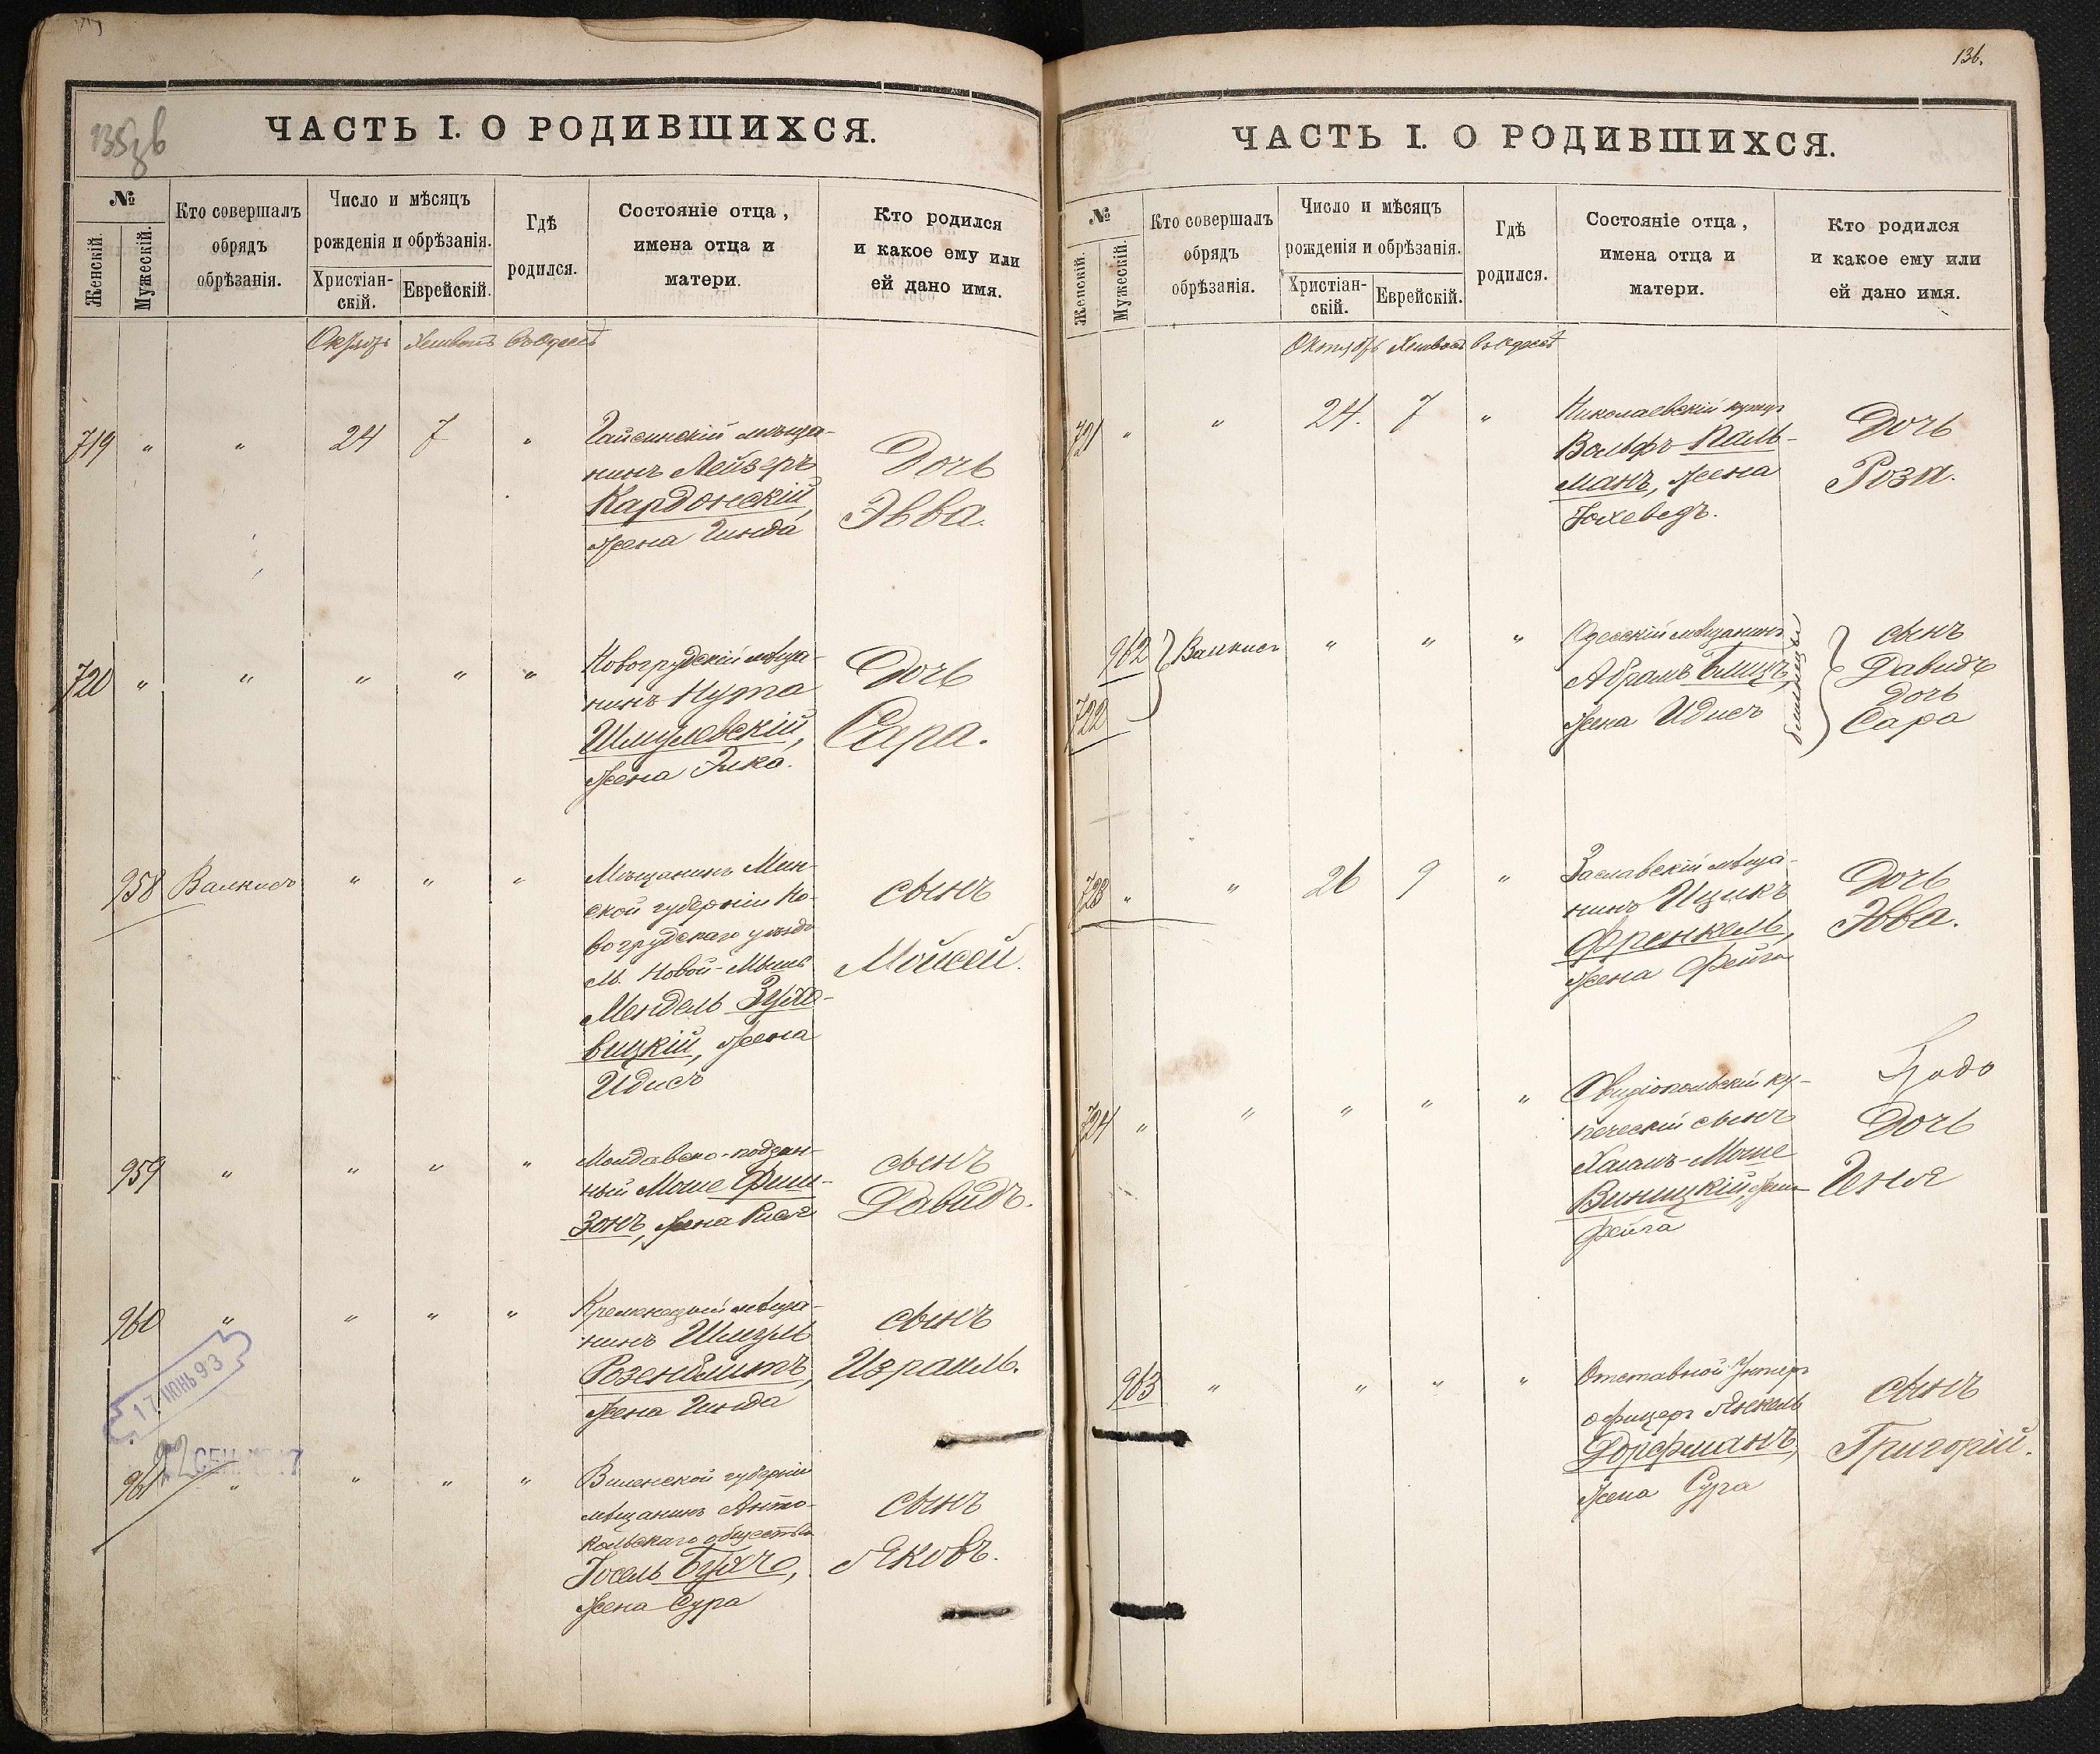 135зв
ЧАСТЬ I. О РОДИВШИХСЯ.
№
Женскій.
Мужескій.
Кто совершалъ
обрядъ
обрѣзанія.
Число и мѣсяцъ
рожденія и обрѣзанія.
Христіан-
скій.
Еврейскій.
Гдѣ
родился.
Состояніе отца,
имена отца и
матери.
Кто родился
и какое ему или
ей дано имя.
Октябрь Хешвонъ въ Одессѣ
719 " " 24 7 "
Гайсинскій мѣща-
нинъ Лейзеръ
Кардонскій,
жена Гинда
Дочь
Эвва.
720 " " " " "
Новогрудскій мѣща-
нинъ Нута
Шмулевскій,
жена Элка.
Дочь
Сара.
958 Валкисъ " " "
Мѣщанинъ Мин-
ской губерніи Но-
вогрудскаго уѣзда
М. Новой-Мыши
Мендель Зухо-
вицкій, жена
Идисъ
сынъ
Мойсей.
959 " " " "
Молдавско-поддан-
ный Моше Фиш-
зонъ, жена Рися
сынъ
Давидъ.
960 " " " "
Кременецкій мѣща-
нинъ Шмуль
Розенблитъ,
жена Гинда
сынъ
Израиль.
17 ІЮНЬ 93
22 СЕН.
961 " " " "
Виленской губерніи
мѣщанинъ Анто-
кольскаго общества
Іосель
жена Сура
сынъ
Яковъ.
136.
ЧАСТЬ I. О РОДИВШИХСЯ.
№
Женскій.
Мужескій.
Кто совершалъ
обрядъ
обрѣзанія.
Число и мѣсяцъ
рожденія и обрѣзанія.
Христіан-
скій.
Еврейскій.
Гдѣ
родился.
Состояніе отца,
имена отца и
матери.
Кто родился
и какое ему или
ей дано имя.
Октябрь Хешвонъ въ Одессѣ
721 " " 24. 7 "
Николаевскій купецъ
Вольфъ Паль-
манъ, жена
Іохеведъ.
Дочь
Роза.
962 Валкисъ " " "
722
Одесскій мѣщанинъ
Абрамъ Блицъ,
жена Идисъ
близнецы
сынъ
Давидъ
Дочь
Сара
723 " " 26 9 "
Заславскій мѣща-
нинъ Ицикъ
Френкель,
жена Фейга
Дочь
Эвва.
724 " " " " "
Овидіопольскій ку-
печескій сынъ
Хаимъ-Моше
Виницкій жена
Фейга
Дочь
Иня
963 " " " "
Отставной Унтеръ
офицеръ Янкель
Дорфманъ,
жена Сура
сынъ
Григорій.